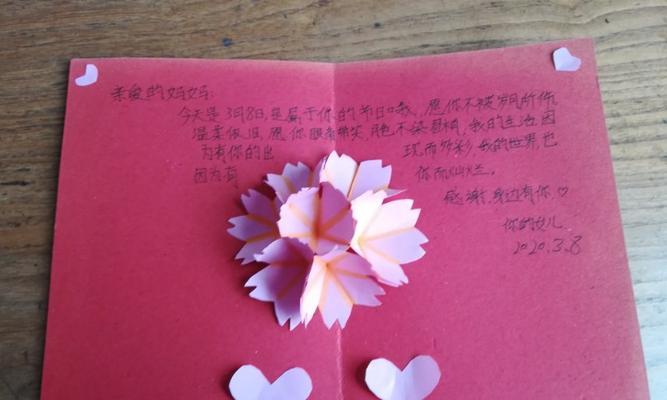 亲爱的妈妈:
今天是3月8日,是属于你的节日哦,愿你不被岁月所伤
温柔依旧,愿你眼看带笑,色不染眉梢,我的生活因
为有你的出现而多彩,我的世界也
因为有你而灿烂。
感谢,身边有你♡
你的女儿
2020.3.8